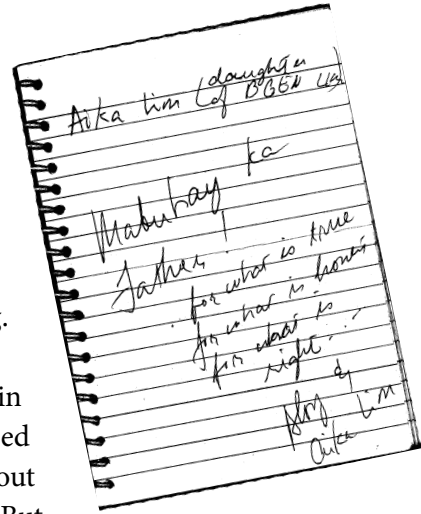 Aika Lim (daughter
of BGEN Lim)
Mabuhay ka
Father!
for what is true
for what is honest
for what is
right...
&
Aika Lim
g.
in
ed
out
But